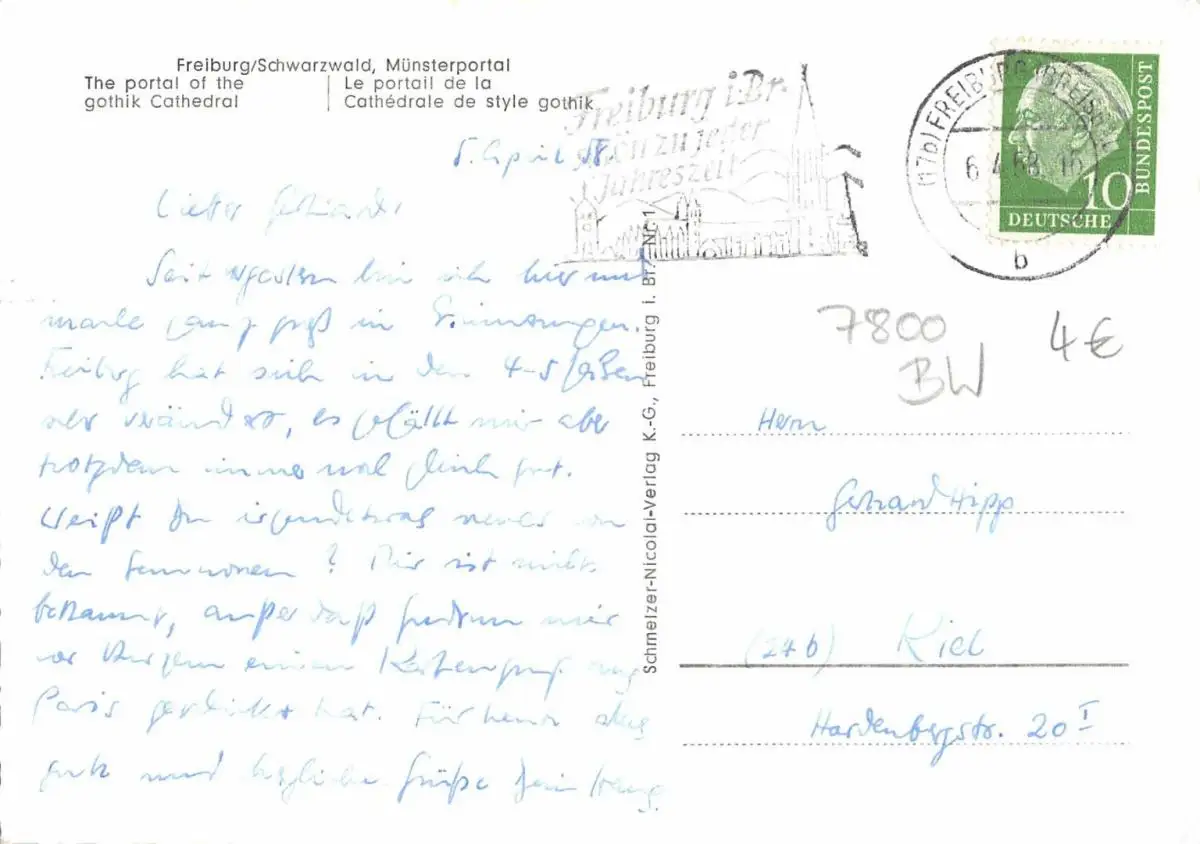 Freiburg/Schwarzwald, Münsterportal
The portal of the
gothik Cathedral
Le portail de la
Cathédrale de style gothik
Freiburg i. Br.
schön zu jeder
Jahreszeit
(17b) FREIBURG (BREISGAU)
6.4.58
b
10
DEUTSCHE
BUNDESPOST
7800
BW
4 €
5. April 58.
Lieber Gerhard,
Seit gestern bin ich hier und
mache ganz in Erinnerungen.
Freiburg hat sich in den 4-5 Jahren
sehr verändert, es gefällt mir aber
trotzdem immer mal gut.
Weißt Du irgendetwas neues von
den ? Mir ist nichts
bekannt, außer daß mir
vor kurzem einen Kartengruß aus
Paris geschickt hat. Für heute alles
gute und herzliche Grüße Dein
Schmelzer-Nicolai-Verlag K.-G., Freiburg i. Br. Nr. 1
Herrn
Gerhard Hipp
(24b) Kiel
Hardenbergstr. 20 I